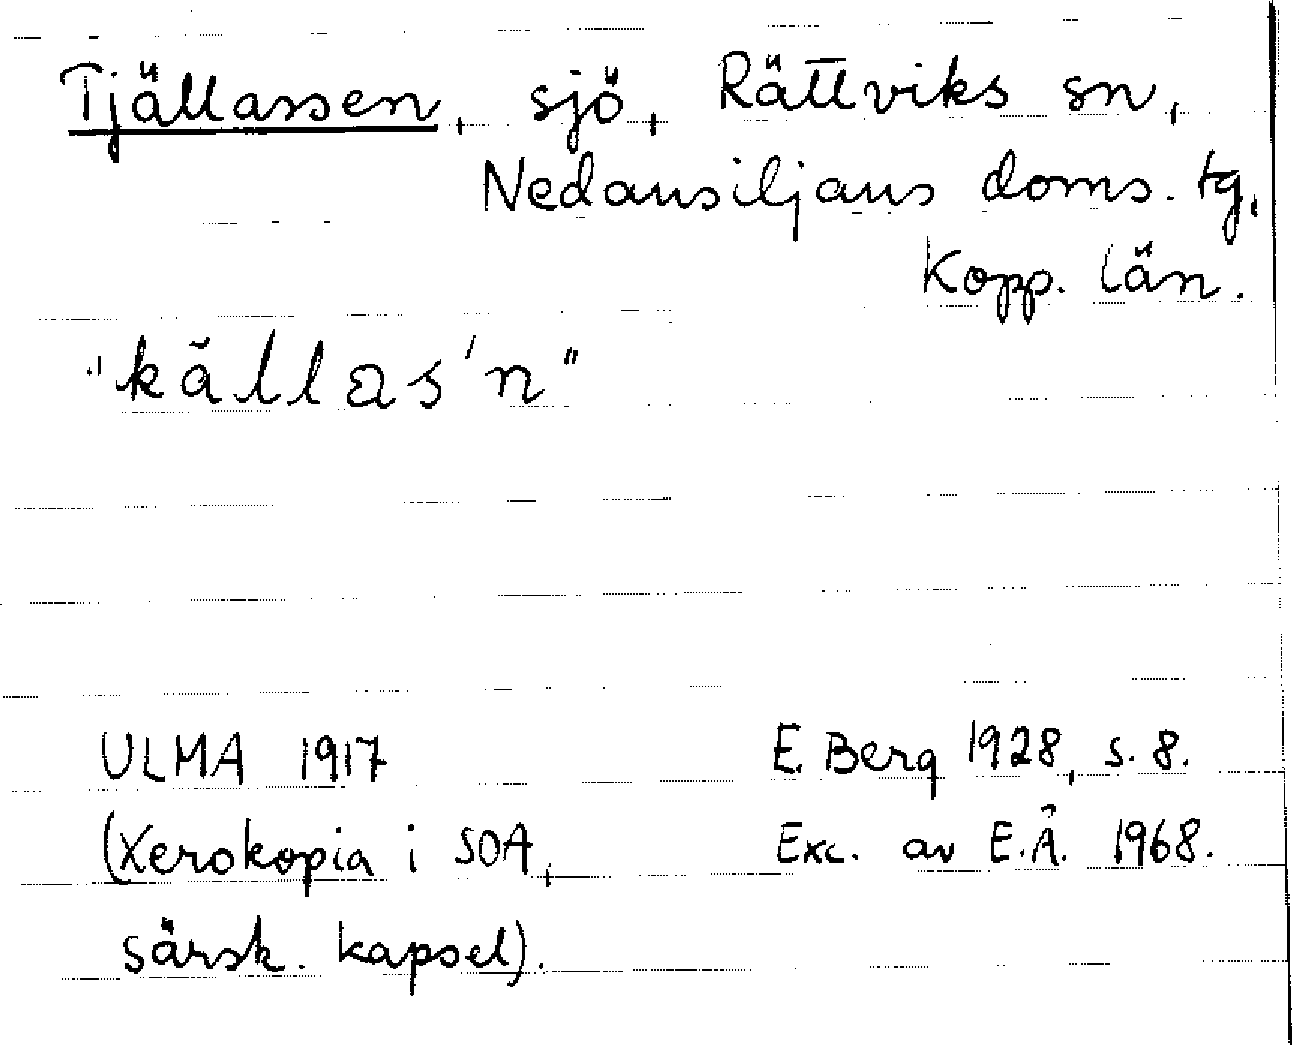 Tjällassen, sjö, Rättviks sn,
Nedansiljans doms. tg,
Kopp. län.
"källas'n"
ULMA 1917
(Xerokopia i SOA,
särsk. kapsel).
E. Berg 1928, s. 8.
Exc. av E.Å. 1968.